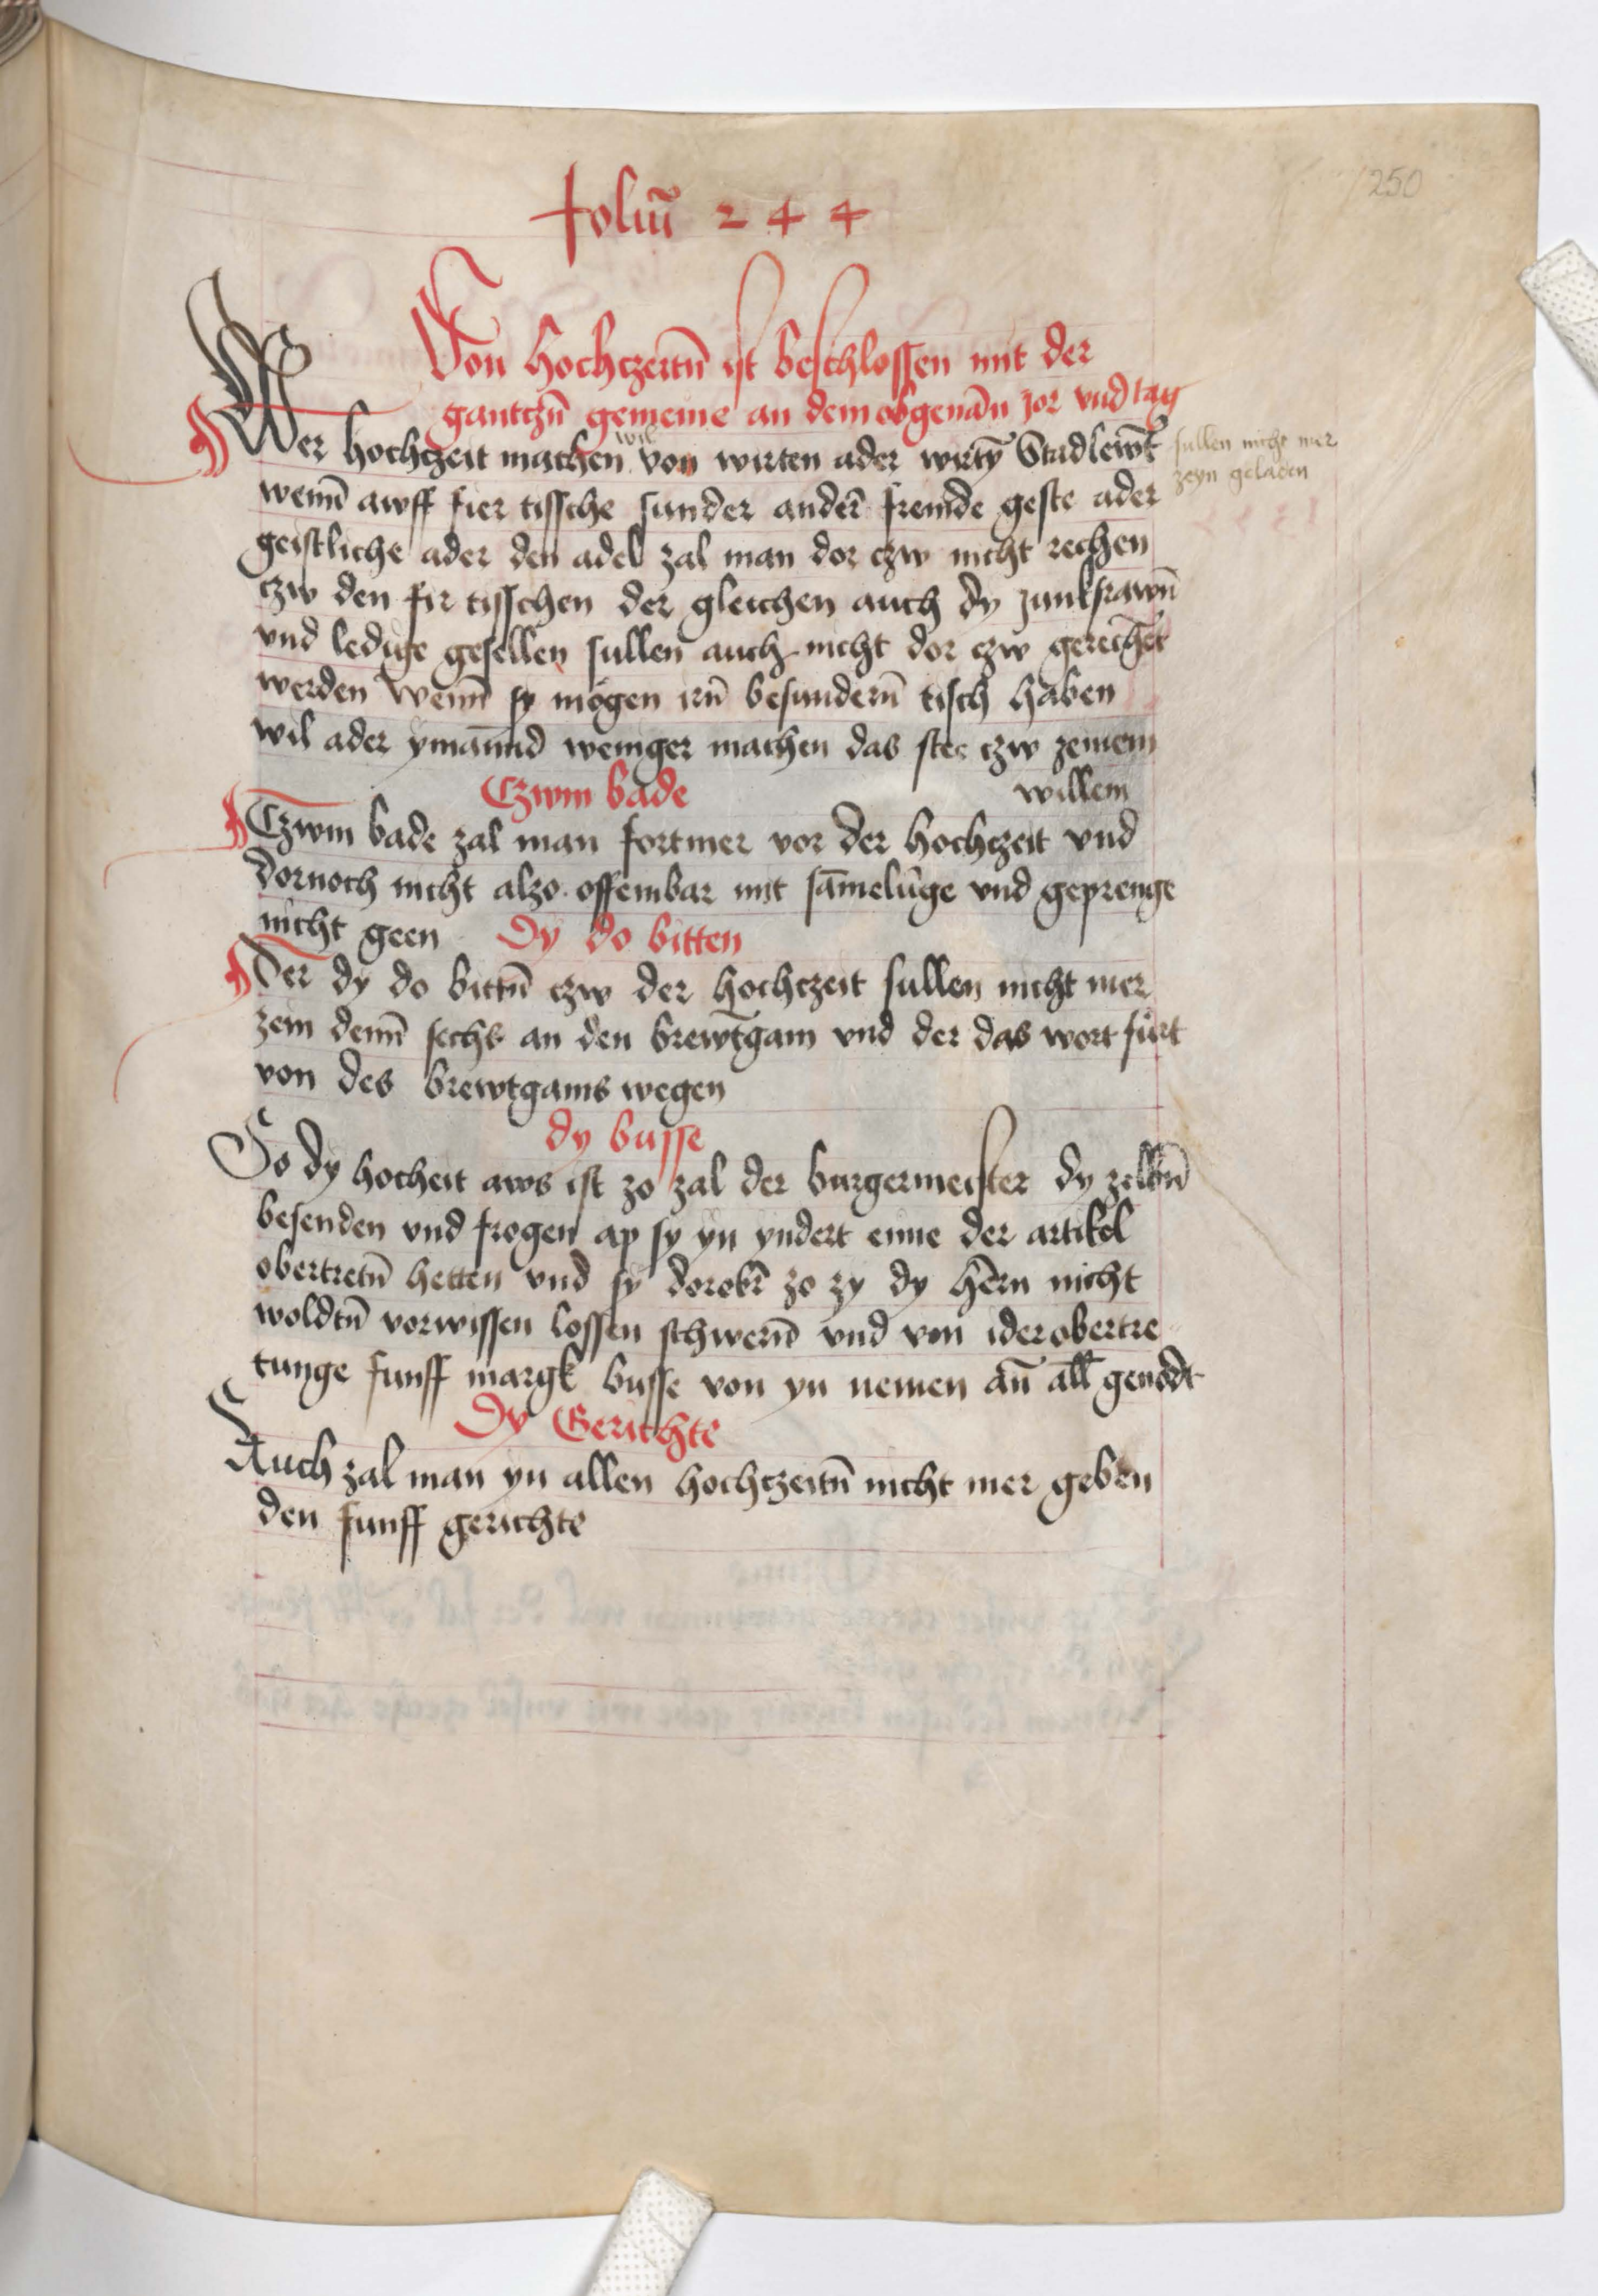 foliū 2 4 4
250
Von hochczeitn̄ ist beschlossen mit der
gantczn̄ gemeine an dem obgenān jor vnd tag
Wer hochczeit machen wil von wirten ader wirtȳ Stadlewt̄ sullen nicht mer
zeyn geladen
wenn̄ awff fier tissche sunder ander̄ fremde geste ader
geistliche ader den adel zal man dor czw nicht rechen
czw den fir tisschen der gleichen auch dy junkfrawn̄
vnd ledige gesellen sullen auch nicht dor czw gerechet
werden wenn̄ sy mögen irn̄ besundern̄ tisch haben
wil ader ymānnd weniger machen das stee czw zeinem
willem
Czwm bade
Czwm bade zal man fortmer vor der hochczeit vnd
dornoch nicht alzo offembar mit sāmelūge vnd geprenge
nicht geen Dy do bitten
Der dy do bittn̄ czw der hochczeit sullen nicht mer
zein denn̄ sechs an den brewtgam vnd der das wort fürt
von des brewtgams wegen
dy busse
So dy hocheit aws ist zo zal der burgermeister dy zelbn̄
besenden vnd frogen ap sy yn yndert eine der artikel
obertretn̄ hetten vnd sy dorobir̄ zo zy dy hērn nicht
woldtn̄ vorwissen lossen schwern̄ vnd von ider obertre
tunge funff margk busse von yn nemen an̄ all̄ genodt
Dy Gerichte
Auch zal man yn allen hochczeitn̄ nicht mer geben
den funff gerichte